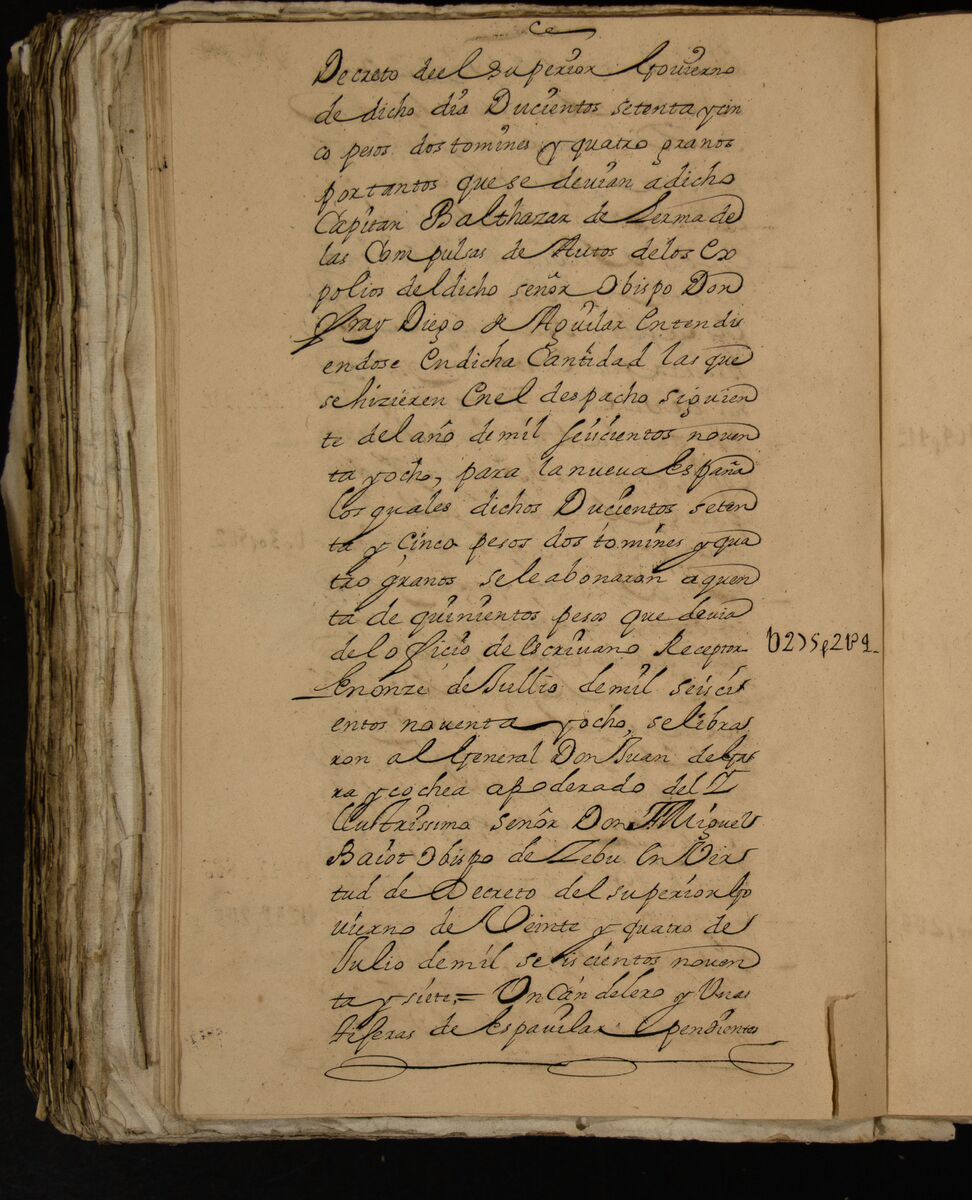 ce
Decreto deel Superior Govierno
de dicho dia Ducientos setenta y cin
co pesos dos tomines y quatro granos
por tantos que se devian a dicho
Capitan Balthazar de Lerma de
las Compulsas de Autos de los Ex
polios del dicho señor Obispo Don
fray Diego de Aguilar Entendi
endose En dicha Cantidad las que
se hizieren En el despacho siguien
te del año de mil seiscientos noven
ta y ocho, para la nueva España
Los quales dichos Ducientos seten
ta y Cinco pesos dos tomines y qua
tro granos se le abonaron a quen
ta de quinientos pesos que devia
del oficio de Escrivano Receptor
U275p2t4
En onze de Jullio de mil seisci
entos noventa y ocho, se libra
ron al General Don Juan de
ra y cochea apoderado del I
llustrissimo señor Don Miguel
Baiot Obispo de Zebu En Vir
tud de Decreto del superior Go
vierno de Veinte y quatro de
Julio de mil seiscientos noven
ta y siete = Un Candelero y Unas
tiseras de Espavilar pendientes